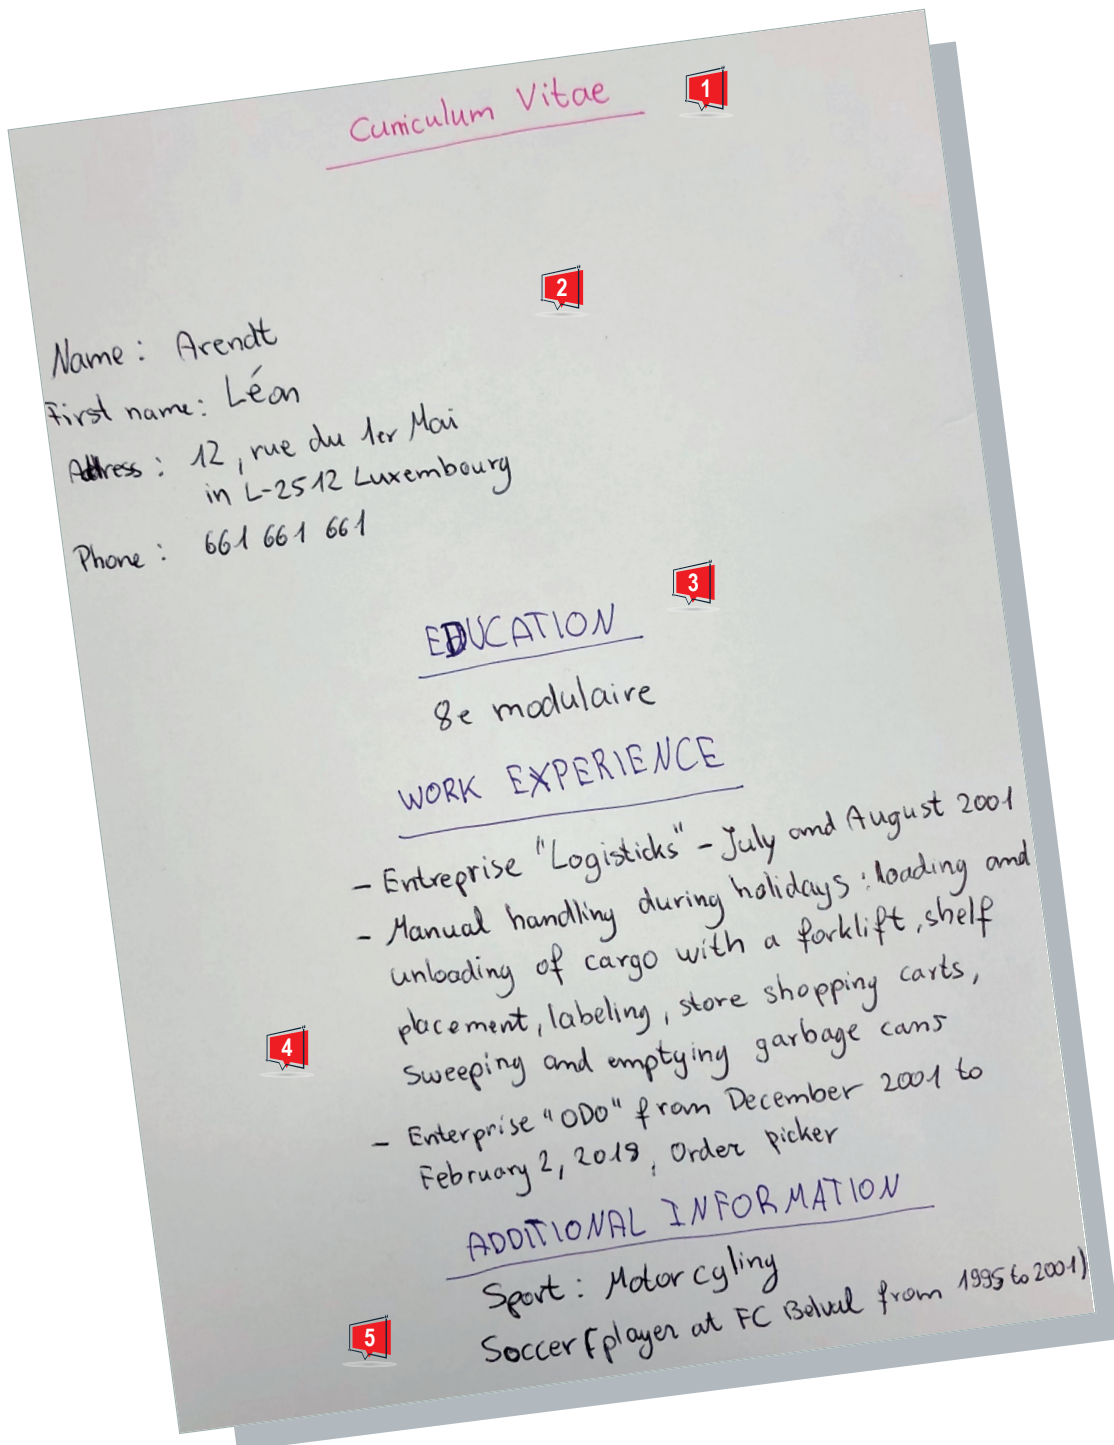 Curriculum Vitae
1
2
Name : Arendt
First name: Léon
Address : 12, rue du 1er Mai
in L-2512 Luxembourg
Phone : 661 661 661
3
EDUCATION
8e modulaire
WORK EXPERIENCE
- Entreprise "Logisticks" - July and August 2001
- Manual handling during holidays : loading and
unloading of cargo with a forklift, shelf
placement, labeling, store shopping carts,
4
sweeping and emptying garbage cans
- Enterprise "ODO" from December 2001 to
February 2, 2018, Order picker
ADDITIONAL INFORMATION
Sport : Motorcyling
5
Soccer (player at FC Belval from 1995 to 2001)